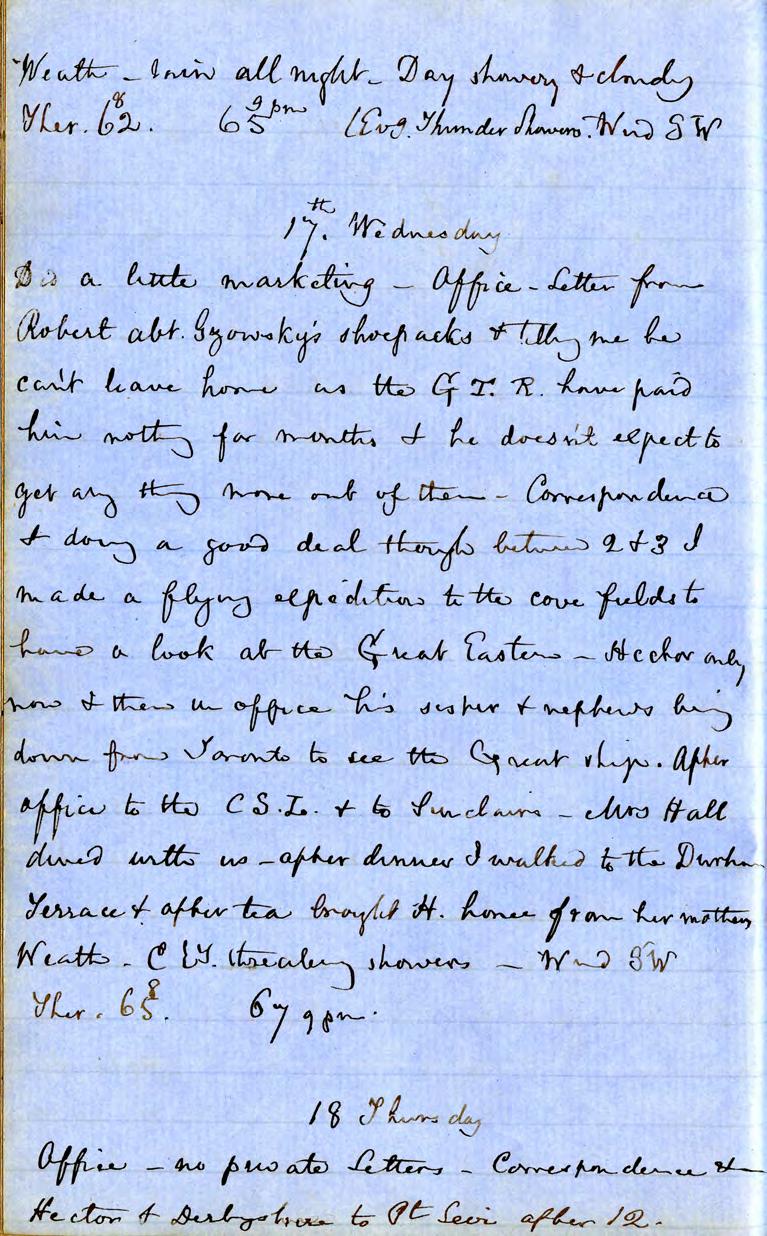 Weath – rain all night – Day showery & cloudy
Ther. 62 8. 65 9 pm (Evg. Thunder Showers. Wind SW
17th. Wednesday
Did a little marketing – Office – Letter from
Robert abt. Gzowsky's shoepacks & tellg me he
can't leave home as the G T. R. have paid
him nothg for months & he doesn't expect to
get any thg more out of them – Correspondence
& doing a good deal though between 2 & 3 I
made a flying expedition to the cove fields to
have a look at the Great Eastern – Hector only
now & then in office his sister & nephews being
down from Toronto to see the Great ship. After
office to the C S. L. & to Sinclairs – Mrs Hall
dined with us – after dinner I walked to the Durham
Terrace & after tea brought H. home from her mothers
Weath – threateng showers – Wind SW
Ther. 65 8. 67 9 pm.
18 Thursday
Office – no private Letters – Correspondence &
Hector & Derbyshire to Pt Levi after 12.